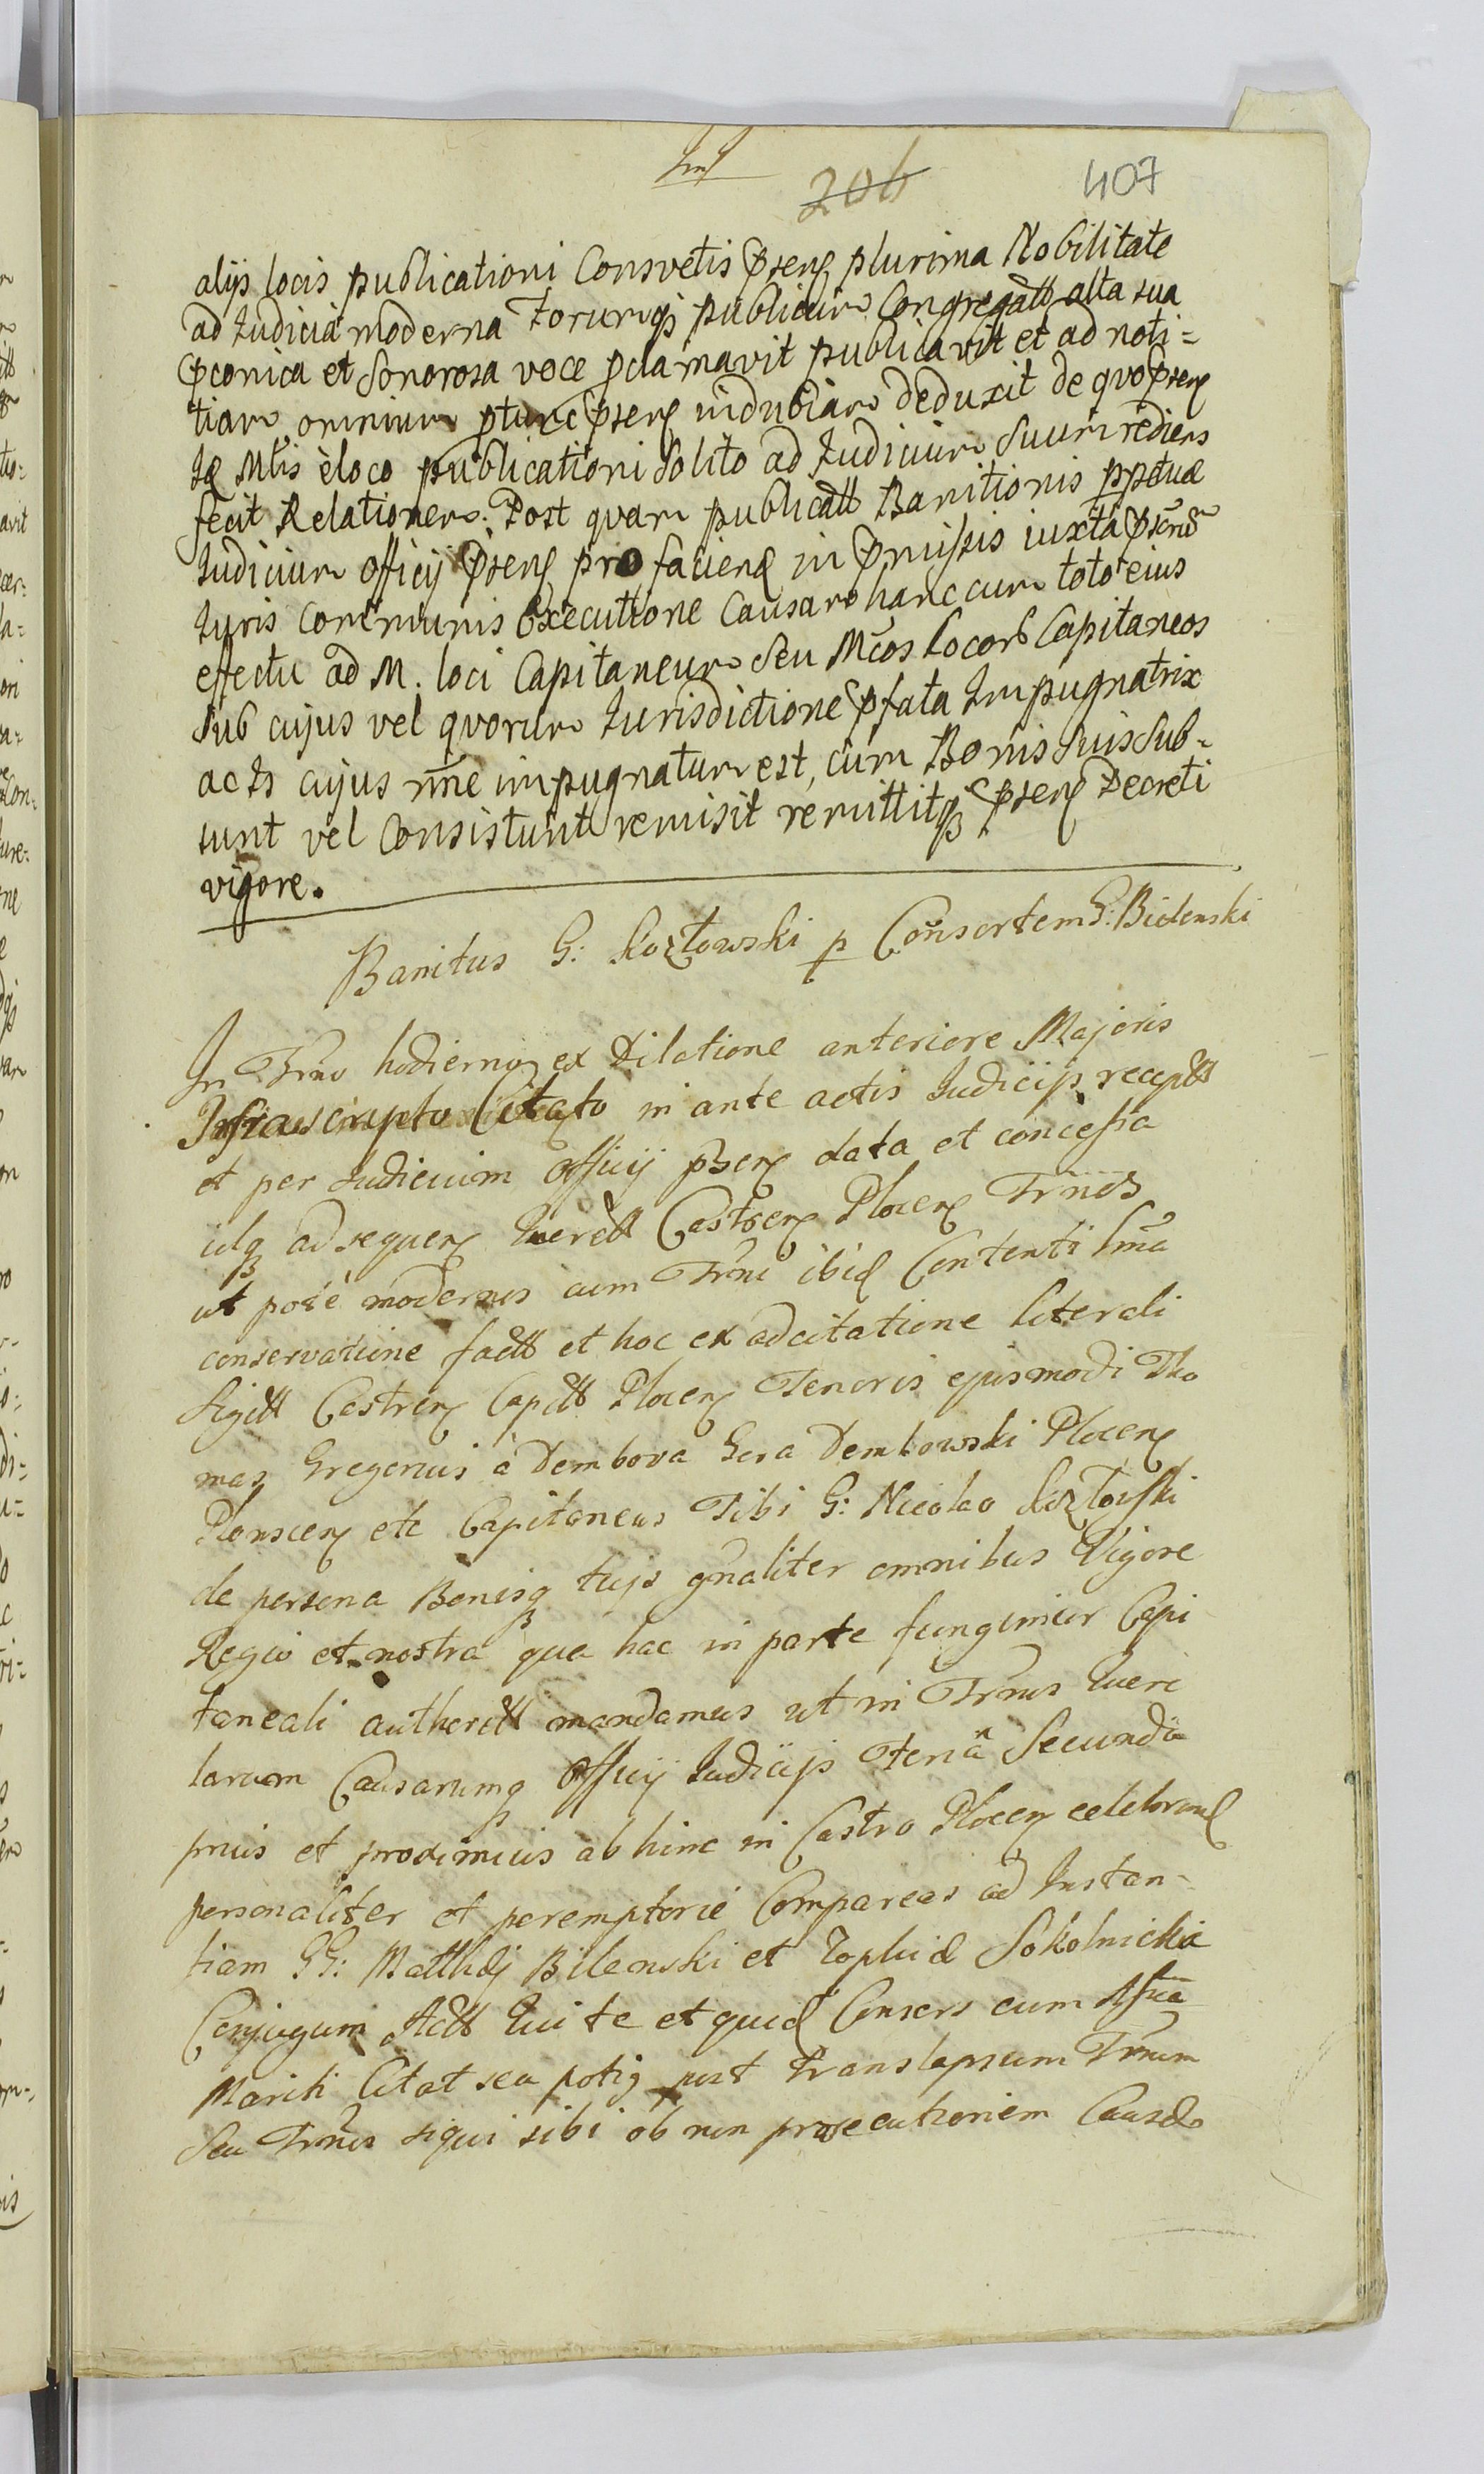 206 407
alijs locis publicationi Consvetis pseng plurima Nobilitate
ad Judicia moderna Forumq publicum Congregatt alta sua
pconica et Sonorosa voce pclamavit publicavit et ad noti=
tiam omnium ptunc pseng indubiam deduxit de qvo pseng
Mtis e loco publicationi Solito ad Judicium Suum rediens
fecit Relationem. Post qvam publicatt Banitionis ppetuæ
Judicium officij pseng pro faciend in pmissis iuxta
Juris communis Executione Causam hanc cum toto eius
effectu ad M. loci Capitaneum Seu Mcos Locor Capitaneos
Sub cujus vel qvorum Jurisdictione pfata Impugnatrix
ac Is cujus rnne impugnatum est, cum Bonis Suis Sub-
sunt vel Consistunt remisit remittitq pseng Decreti
vigore.
Banitus G: Kozłowski p Consortem G: Bielenski
In Trno hodierno ex Dilatione anteriore Majoris
Infrascripto Citato in ante actis Judicijs receptt
et per Judicium Officij pseng data et concessa
idq ad sequeng Querett Castreng Ploceng Trnos
ut posè modernus cum Trni ibid Contenti lma
conservatione factt et hoc ex adcitatione literali
Sigill Castreng Capitt Ploceng Tenoris ejusmodi Tho
mas Gregorius à Dembova Gora Dembowski Ploceng
Plonsceng etc Capitaneus Tibi G: Nicolao Kozłowski
de persona Bonisq tuis gnaliter omnibus Vigore
Regio et nostra qua hac in parte fungimur Capi
taneali authoritt mandamus ut in Trnis Quere
larum Causarumq Officij Judicijs Feria Secunda
pmis et proximius ab hinc in Castro Ploceng celebrand
personaliter et peremptorie Compareas ad Instan-
tiam GG: Matthæj Bilenski et Zophiæ Sokolnicka
Conjugum Actt Qui te et quid Consors cum Assta
Mariti Citat seu potig post translapsum Trnum
Seu Trnos siqui sibi ob non prosecutionem Causæ